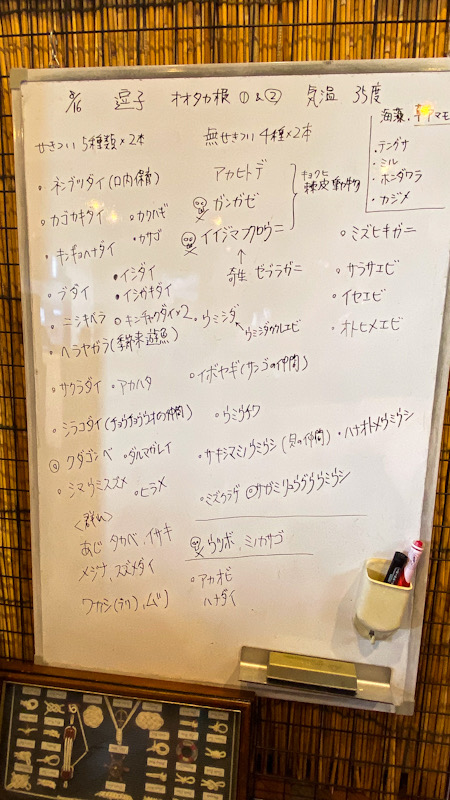 8/16 逗子 オオタカ根 ①&② 気温 35度
海藻、アマモ
・テングサ
・ミル
・ホンダワラ
・カジメ
せきつい 5種類×2本
無せきつい 4種×2本
・ネンブツダイ(口内保育)
・カゴカキダイ ・カワハギ
・キンギョハナダイ ・カサゴ
・ブダイ ・イシダイ
・イシガキダイ
・ニシキベラ ・キンチャクダイ×2
・ヘラヤガラ(季節来遊魚)
・サクラダイ ・アカハタ
・シラコダイ(チョウチョウウオの仲間)
クダゴンベ ・ダルマガレイ
・シマウミスズメ ・ヒラメ
<群れ>
あじ タカベ、イサキ
メジナ、スズメダイ
ワカシ(ブリ)、ムツ
アカヒトデ
ガンガゼ
イイジマフクロウニ
キョクヒ
棘皮動物
↑
寄生 ゼブラガニ
・ウミシダ
ウミシダウクレエビ
・イボヤギ(サンゴの仲間)
・ウミウチワ
・サキシマミノウミウシ(貝の仲間) ・ハナオトメウミウシ
・ミズクラゲ ◎サガミリュウグウウミウシ
ウツボ、ミノカサゴ
・アカオビ
ハナダイ
・ミズヒキガニ
・サラサエビ
・イセエビ
・オトヒメエビ